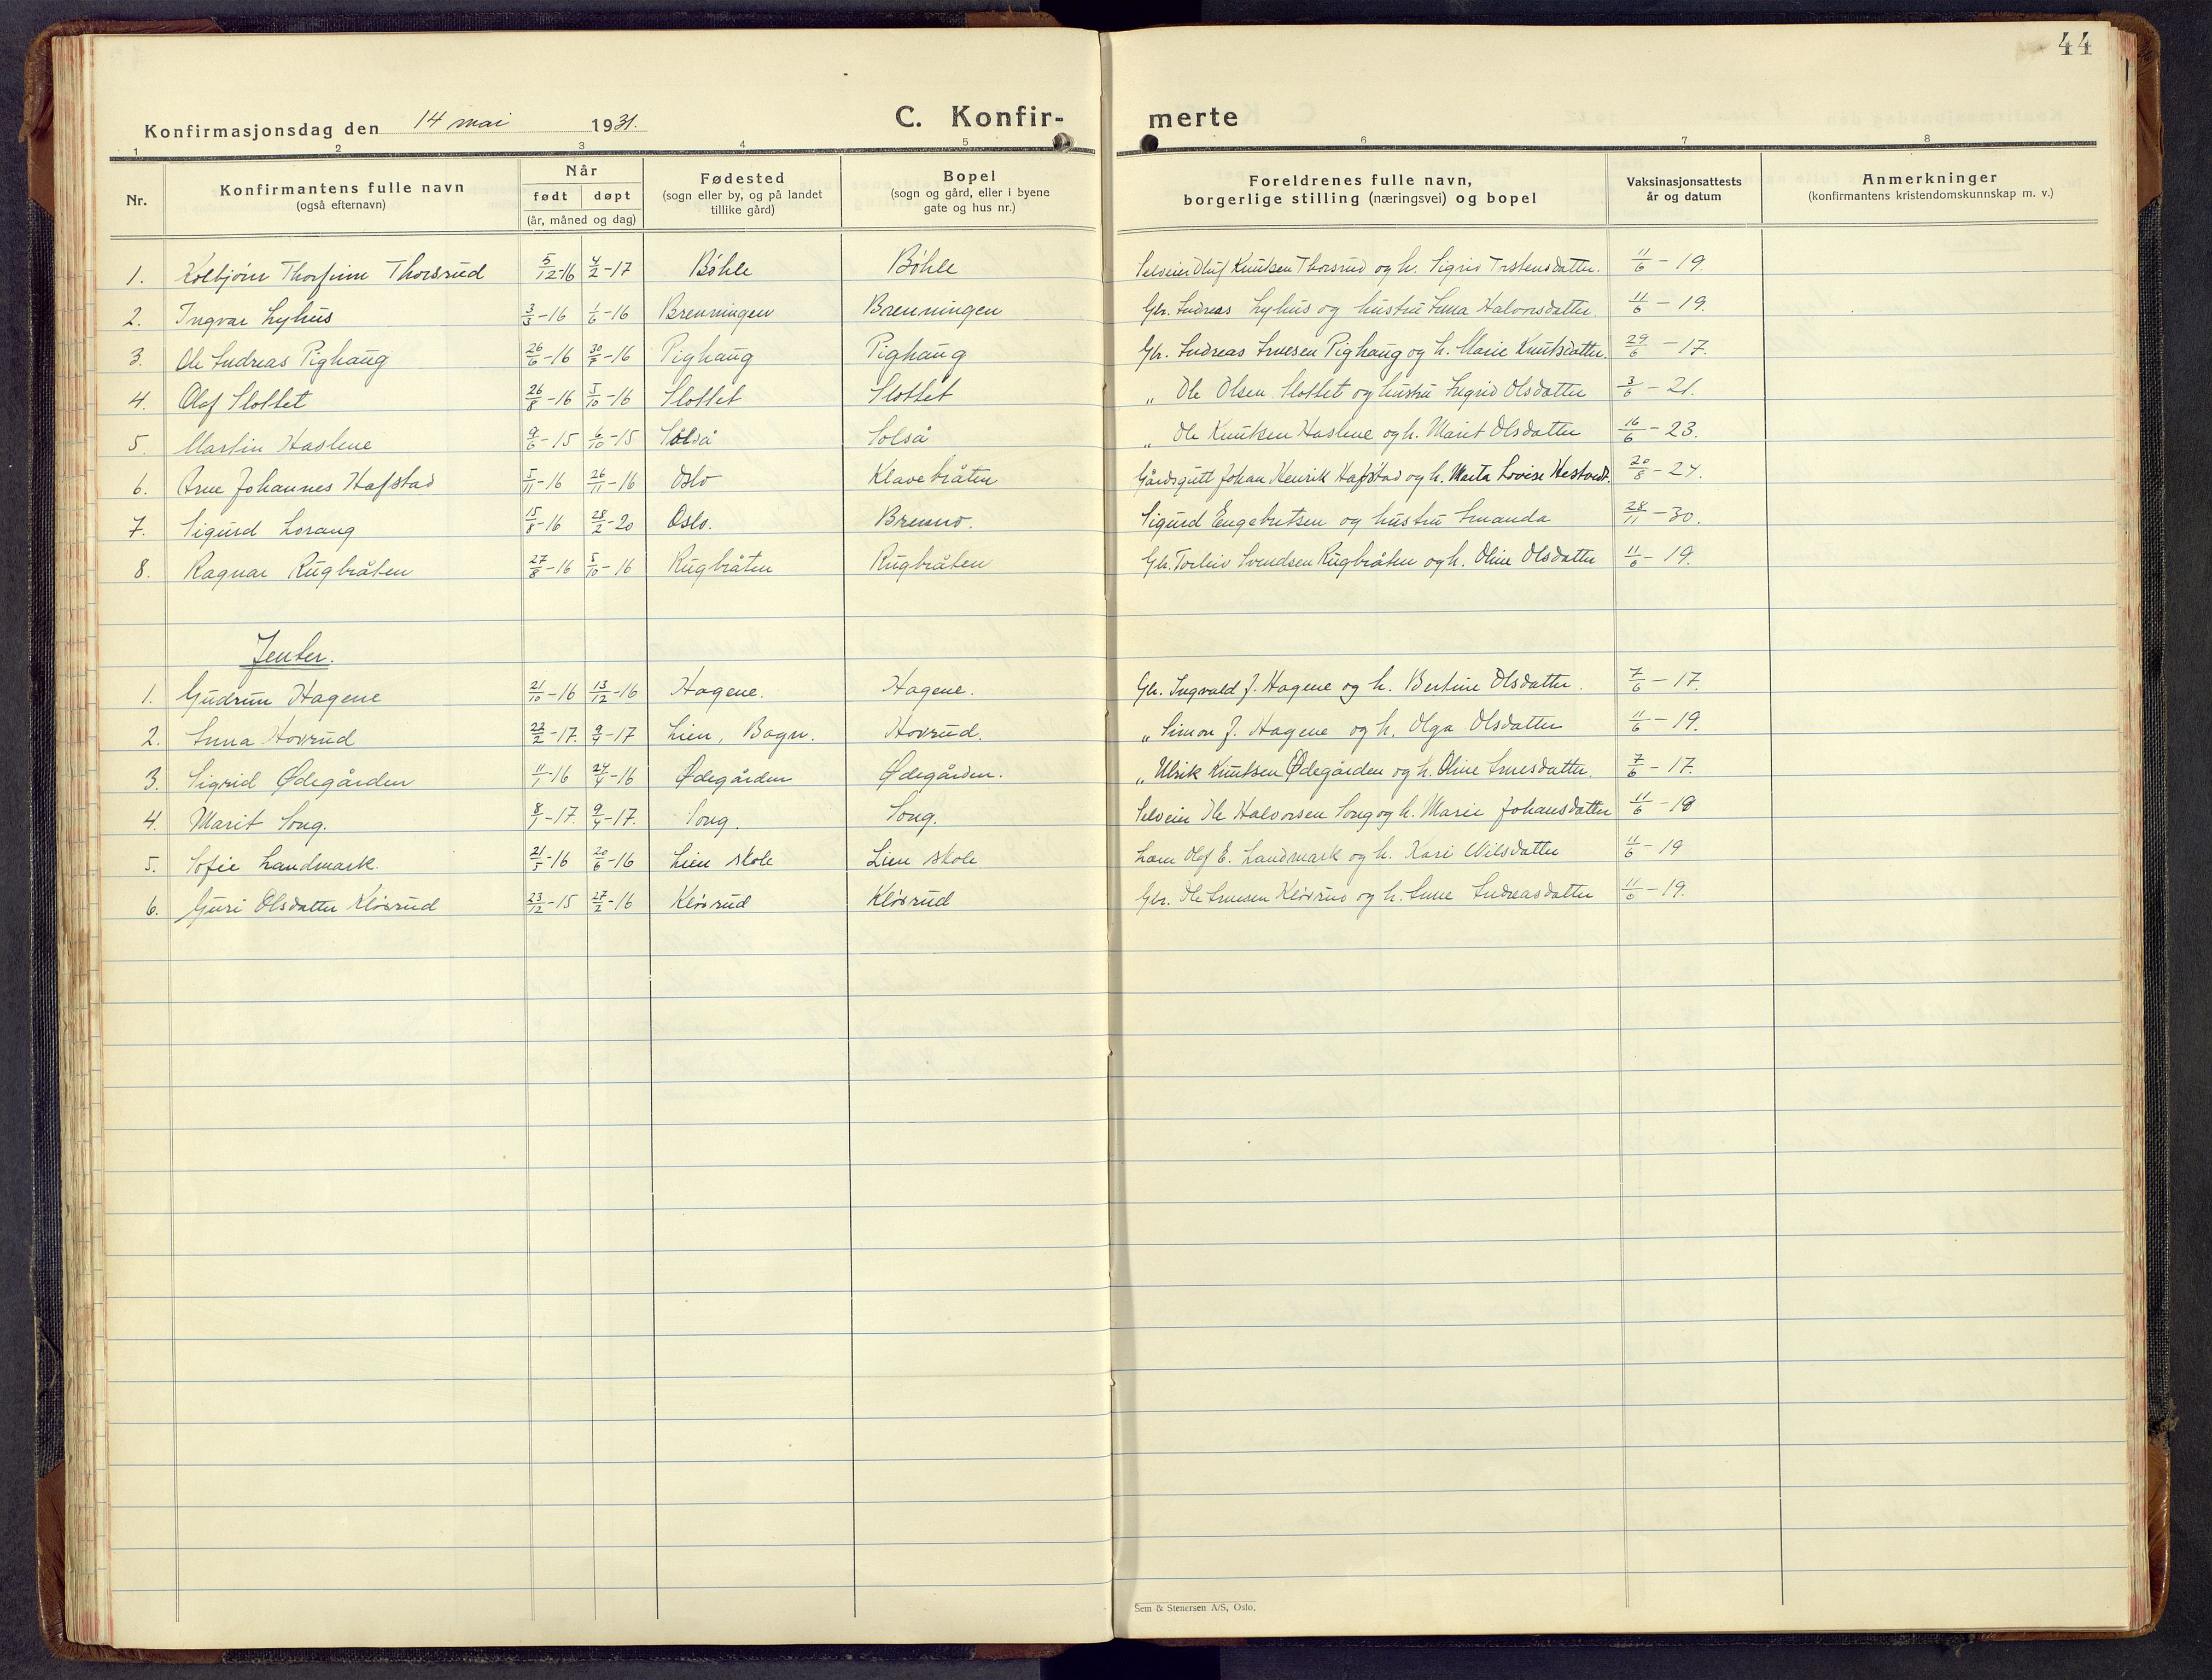 44
Konfirmasjonsdag den 14 mai 1931.
C. Konfir-
merte
1 2 3 4 5 6 7 8
Nr.
Konfirmantens fulle navn
(også efternavn)
Når
født døpt
(år, måned og dag)
Fødested
(sogn eller by, og på landet
tillike gård)
Bopel
(sogn og gård, eller i byene
gate og hus nr.)
Foreldrenes fulle navn,
borgerlige stilling (næringsvei) og bopel
Vaksinasjonsattests
år og datum
Anmerkninger
(konfirmantens kristendomskunnskap m. v.)
1. Kolbjörn Thorfinn Thorsrud 5/12-16 4/2-17 Böhle Böhle Selveier Oluf Knutsen Thorsrud og h. Sigrid Trstensdatter. 11/6-19.
2. Ingvar Lyhus 3/3-16 1/6-16 Brenningen Brenningen Gbr. Andreas Lyhus og hustru Anna Halvorsdatter. 11/6-19.
3. Ole Andreas Pighaug 26/6-16 30/7-16 Pighaug Pighaug Gbr. Andreas Arnesen Pighaug og h. Marie Knutsdatter. 29/6-17.
4. Olaf Slottet 26/8-16 5/10-16 Slottet Slottet „ Ole Olsen Slottet og hustru Ingrid Olsdatter 3/6-21.
5. Martin Haslene 9/6-15 6/10-15 Solså Solså „ Ole Knutsen Haslene og h. Marit Olsdatter 16/6-23.
6. Arne Johannes Hafstad 5/11-16 26/11-16 Oslo Klavebråten Gårdsgutt Johan Henrik Hafstad og h. Marta Lovise Hestvedt. 20/8-24.
7. Sigurd Lorang 15/8-16 28/2-20 Oslo. Brenno. Sigurd Engebretsen og hustru Amanda 28/11-30.
8. Ragnar Rugbråten 27/8-16 5/10-16 Rugbråten Rugbråten Gbr. Torleiv Svendsen Rugbråten og h. Oline Olsdatter 11/6-19.
Jenter.
1. Gudrun Hagene 21/10-16 13/12-16 Hagene. Hagene. Gbr. Ingvald J. Hagene og h. Bertine Olsdatter. 7/6-17.
2. Anna Hovrud 22/2-17. 9/4-17 Lien, Bagn. Hovrud. „ Simon J. Hagene og h. Olga Olsdatter 11/6-19.
3. Sigrid Ødegården 11/1-16 24/4-16 Ødegården Ødegården. „ Ulrik Knutsen Ødegården og h. Oline Arnesdatter. 7/6-17.
4. Marit Song. 8/1-17. 9/4-17. Song. Song. Selveier Ole Halvorsen Song og h. Marie Johansdatter 11/6-18
5. Sofie Landmark. 21/5-16 20/6-16 Lien skole Lien skole Lærer Olaf E. Landmark og h. Kari Nilsdatter 11/6-19
6. Guri Olsdatter Klösrud 23/12-15 27/2-16 Klösrud Klösrud Gbr. Ole Arnesen Klösrud og h. Anne Andreasdatter 11/6-19.
Sem & Stenersen A/S, Oslo.